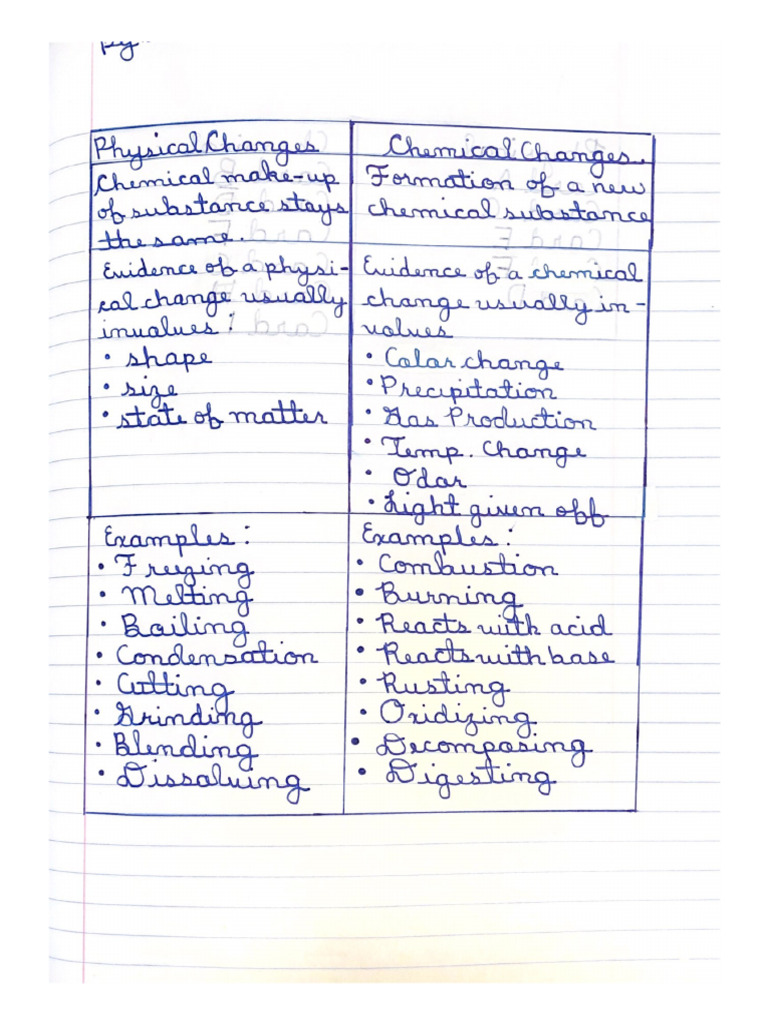 Physical Changes
Chemical Changes.
Chemical make-up
of substance stays
the same.
Formation of a new
chemical substance
Evidence of a physi-
cal change usually
involves:
• shape
• size
• state of matter
Evidence of a chemical
change usually in-
volves
• Color change
• Precipitation
• Gas Production
• Temp. Change
• Odor
• Light given off
Examples:
• Freezing
• Melting
• Boiling
• Condensation
• Cutting
• Grinding
• Blending
• Dissolving
Examples:
• Combustion
• Burning
• Reacts with acid
• Reacts with base
• Rusting
• Oxidizing
• Decomposing
• Digesting